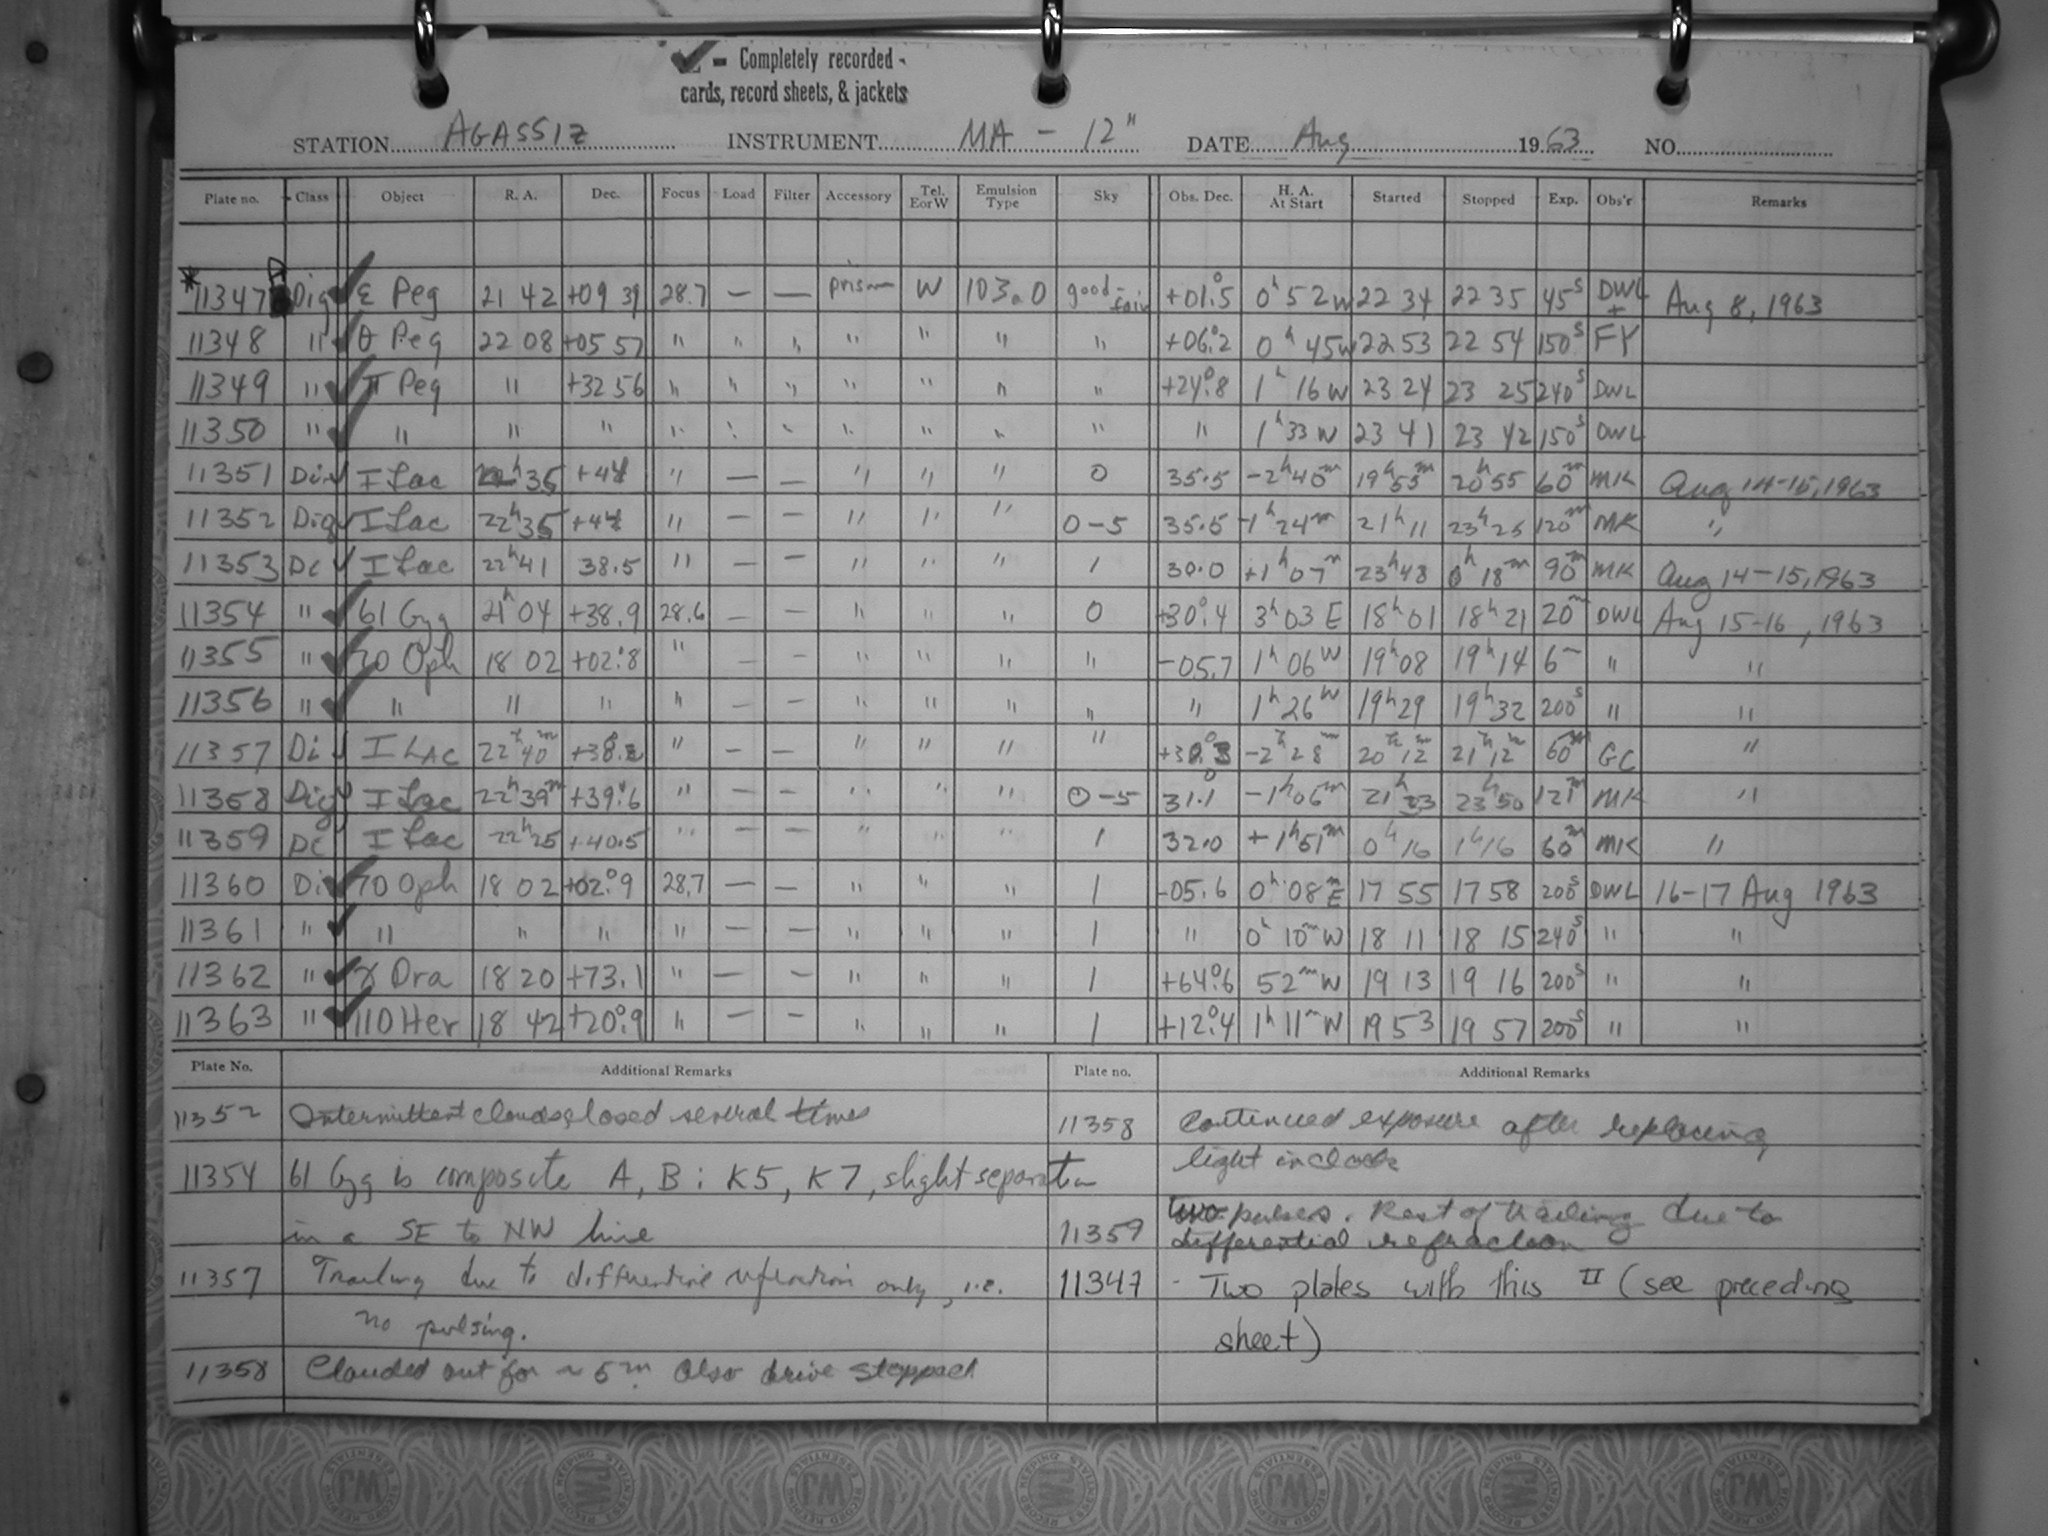 ✓ - Completely recorded -
cards, record sheets, & jackets
STATION AGASSIZ INSTRUMENT MA - 12" DATE Aug 1963 NO.
Plate no. Class Object R. A. Dec. Focus Load Filter Accessory Tel. EorW Emulsion Type Sky Obs. Dec. H. A. At Start Started Stopped Exp. Obs'r Remarks
*11347 II Dig ✓ ε Peg 21 42 +09 39 28.7 — — prism W 103aO good-fair +01°.5 0h 52 W 22 34 22 35 45s DWL + Aug 8, 1963
11348 " ✓ θ Peg 22 08 +05 57 " " " " " " " +06°.2 0h 45 W 22 53 22 54 150s FY
11349 " ✓ π Peg " +32 56 " " " " " " " +24°.8 1h 16 W 23 24 23 25 240s DWL
11350 " ✓ " " " " " " " " " " " 1h 33 W 23 41 23 42 150s DWL
11351 Di ✓ I Lac 22h 35 +44 " — — " " " 0 35.5 -2h 40m 19h 55m 20h 55 60m MK Aug 14-15, 1963
11352 Dig ✓ I Lac 22h 35 +44 " — — " " " 0-5 35.5 -1h 24m 21h 11 23h 25 120m MK "
11353 Di ✓ I Lac 22h 41 38.5 " — — " " " 1 30.0 +1h 07m 23h 48 0h 18m 90m MK Aug 14-15, 1963
11354 " ✓ 61 Cyg 21h 04 +38.9 28.6 — — " " " 0 +30°.4 3h 03 E 18h 01 18h 21 20m DWL Aug 15-16, 1963
11355 " ✓ 70 Oph 18 02 +02°.8 " — — " " " " -05.7 1h 06 W 19h 08 19h 14 6m " "
11356 " ✓ " " " " — — " " " " " 1h 26 W 19h 29 19h 32 200s " "
11357 Di ✓ I LAC 22h 40m +38° " — — " " " " -2h 28m 20h 12m 21h 12m 60m GC "
11358 Dig ✓ I Lac 22h 39m +39°.6 " — — " " " 0-5 31°.1 -1h 06m 21h 33 23h 50 121m MK "
11359 Di I Lac 22h 25 +40.5 " — — " " " 1 32.0 +1h 51m 0h 16 1h 16 60m MK "
11360 Di ✓ 70 Oph 18 02 +02°.9 28.7 — — " " " 1 -05.6 0h 08m E 17 55 17 58 200s DWL 16-17 Aug 1963
11361 " ✓ " " " " — — " " " 1 " 0h 10m W 18 11 18 15 240s " "
11362 " ✓ χ Dra 18 20 +73.1 " — — " " " 1 +64°.6 52m W 19 13 19 16 200s " "
11363 " ✓ 110 Her 18 42 +20°.9 " — — " " " 1 +12°.4 1h 11m W 19 53 19 57 200s " "
Plate No. Additional Remarks Plate no. Additional Remarks
11352 Intermittent clouds closed several times
11354 61 Cyg is composite A, B: K5, K7, slight separation
in a SE to NW line
11357 Trailing due to differential refraction only, i.e.
no pulsing.
11358 Clouded out for ~ 5m. Also drive stopped
11358 Continued exposure after replacing
light in clock
11359 two pulses. Rest of trailing due to
differential refraction
11347 - Two plates with this II (see preceding
sheet)